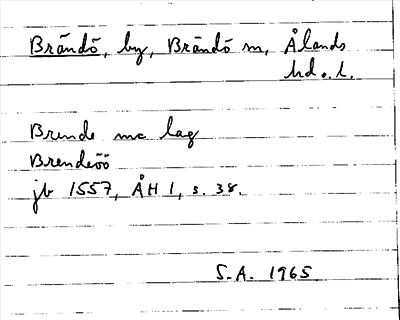 Brändö, by, Brändö sn, Ålands
hd o. l.
Brende mc lag
Brendeöö
jb 1557, ÅH 1, s. 38.
S.A. 1965